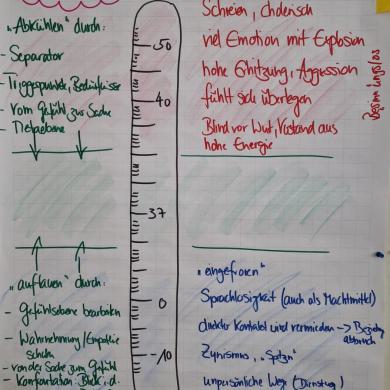 „Abkühlen" durch:
- Separator
- Triggerpunkte, Bedürfnisse
- vom Gefühl zur Sache
- Metaebene
50
40
37
0
-10
Schreien, Cholerisch
viel Emotion mit Explosion
hohe Erhitzung, Aggression
fühlt sich überlegen
Blind vor Wut, Verstand aus
hohe Energie
„auftauen" durch:
- Gefühlsebene bearbeiten
- Wahrnehmung/Empathie
schulen
- von der Sache zum Gefühl
- Konfrontation Blick i.d.
„eingefroren"
Sprachlosigkeit (auch als Machtmittel)
direkter Kontakt wird vermieden -> Bezieh
abbruch
Zynismus, „Spitzen"
unpersönliche Weg (Dienstweg)